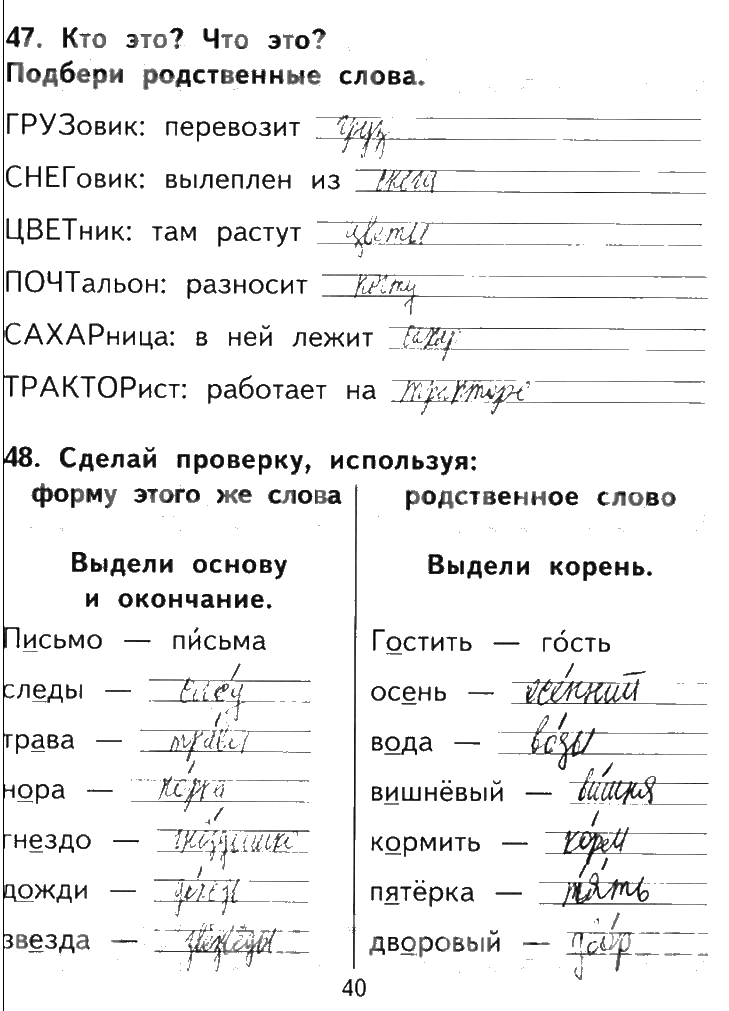 47. Кто это? Что это?
Подбери родственные слова.
ГРУЗовик: перевозит груз
СНЕГовик: вылеплен из снега
ЦВЕТник: там растут цветы
ПОЧТальон: разносит почту
САХАРница: в ней лежит сахар
ТРАКТОРист: работает на тракторе
48. Сделай проверку, используя:
форму этого же слова
Выдели основу
и окончание.
Письмо — пи́сьма
следы — сле́д
трава — тра́вы
нора — но́рка
гнездо — гнёздышко
дожди —
звезда — звёзды
родственное слово
Выдели корень.
Гостить — го́сть
осень — осе́нний
вода — во́ды
вишнёвый — ви́шня
кормить — ко́рм
пятёрка — пя́ть
дворовый — дво́р
40